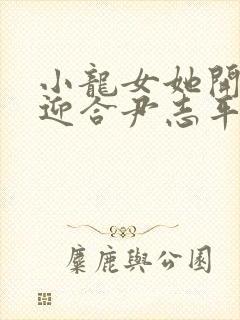 小龍女她開
迎合尹志平
麋鹿與公園